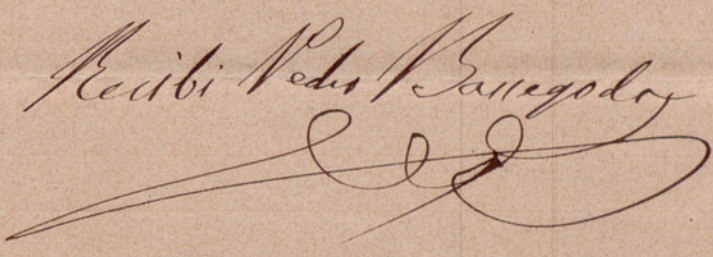 Recibi Pedro Bassegoda